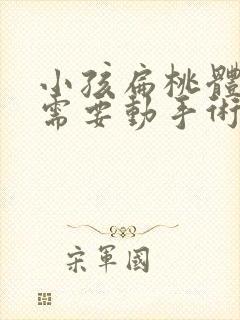 小孩扁桃體
需要動手術
宋軍國